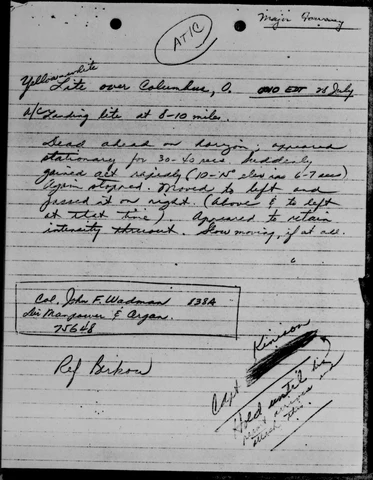 Major
ATIC
Yellow-white
Lite over Columbus, O. 0010 EDT 28 July
A/C Landing lite at 8-10 miles.
Dead ahead on horizon, appeared
stationary for 30-40 secs. Suddenly
gained alt rapidly (10-15° elev in 6-7 secs)
Again stopped. Moved to left and
passed it on right. (Above & to left
at that time). Appeared to retain
intensity thruout. Slow moving, if at all.
Col. John F. Wadman 838A
Dir Manpower & Organ.
75648
Ref
Capt
Hold until